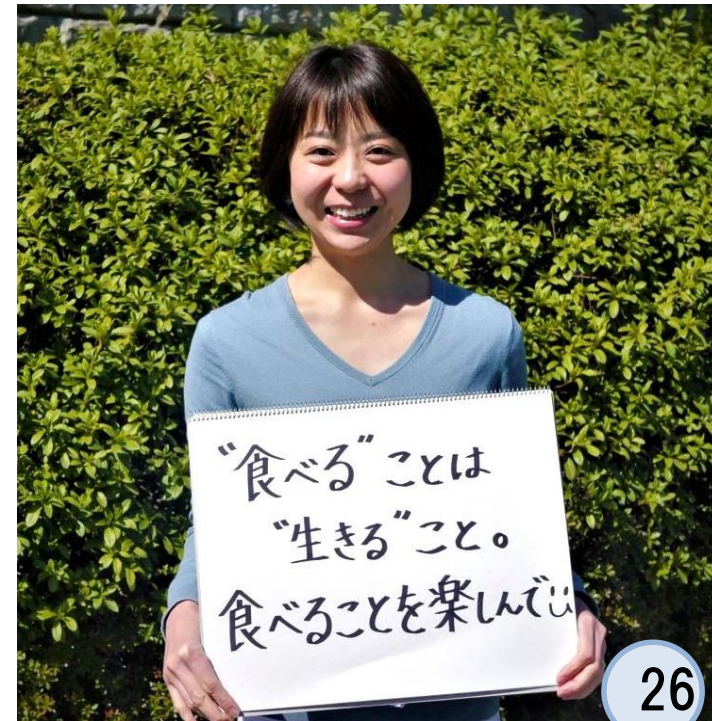 “食べる”ことは
“生きる”こと。
食べることを楽しんで
26